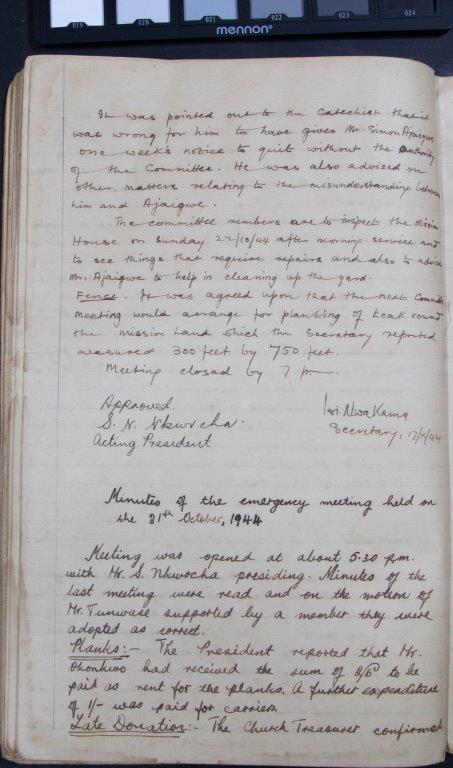 019 020 021 022 023 024
mennon
It was pointed out to the Catechist that it
was wrong for him to have given Mr. Simon Ajaigwe
one week's notice to quit without the authority
of the Committee. He was also advised on
other matters relating to the misunderstanding between
him and Ajaigwe.
The committee members are to inspect the Mission
House on Sunday 22/10/44 after morning service and
to see things that require repairs and also to advise
Mr. Ajaigwe to help in cleaning up the yard.
Fence. It was agreed upon that the next Committee
Meeting would arrange for planting of teak round
the Mission Land which the Secretary reported
measured 300 feet by 750 feet.
Meeting closed by 7 p.m.
Approved.
S. N. Nkwocha.
Acting President
Nwakama
Secretary,
Minutes of the emergency meeting held on
the 31st October, 1944
Meeting was opened at about 5.30 p.m.
with Mr. S. Nkwocha presiding. Minutes of the
last meeting were read and on the motion of
Mr. Tunwase supported by a member they were
adopted as correct.
Planks:- The President reported that Mr.
Okonkwo had received the sum of to be
paid as rent for the planks. A further expenditure
of 1/- was paid for carriers.
Late Donation:- The Church Treasurer confirmed